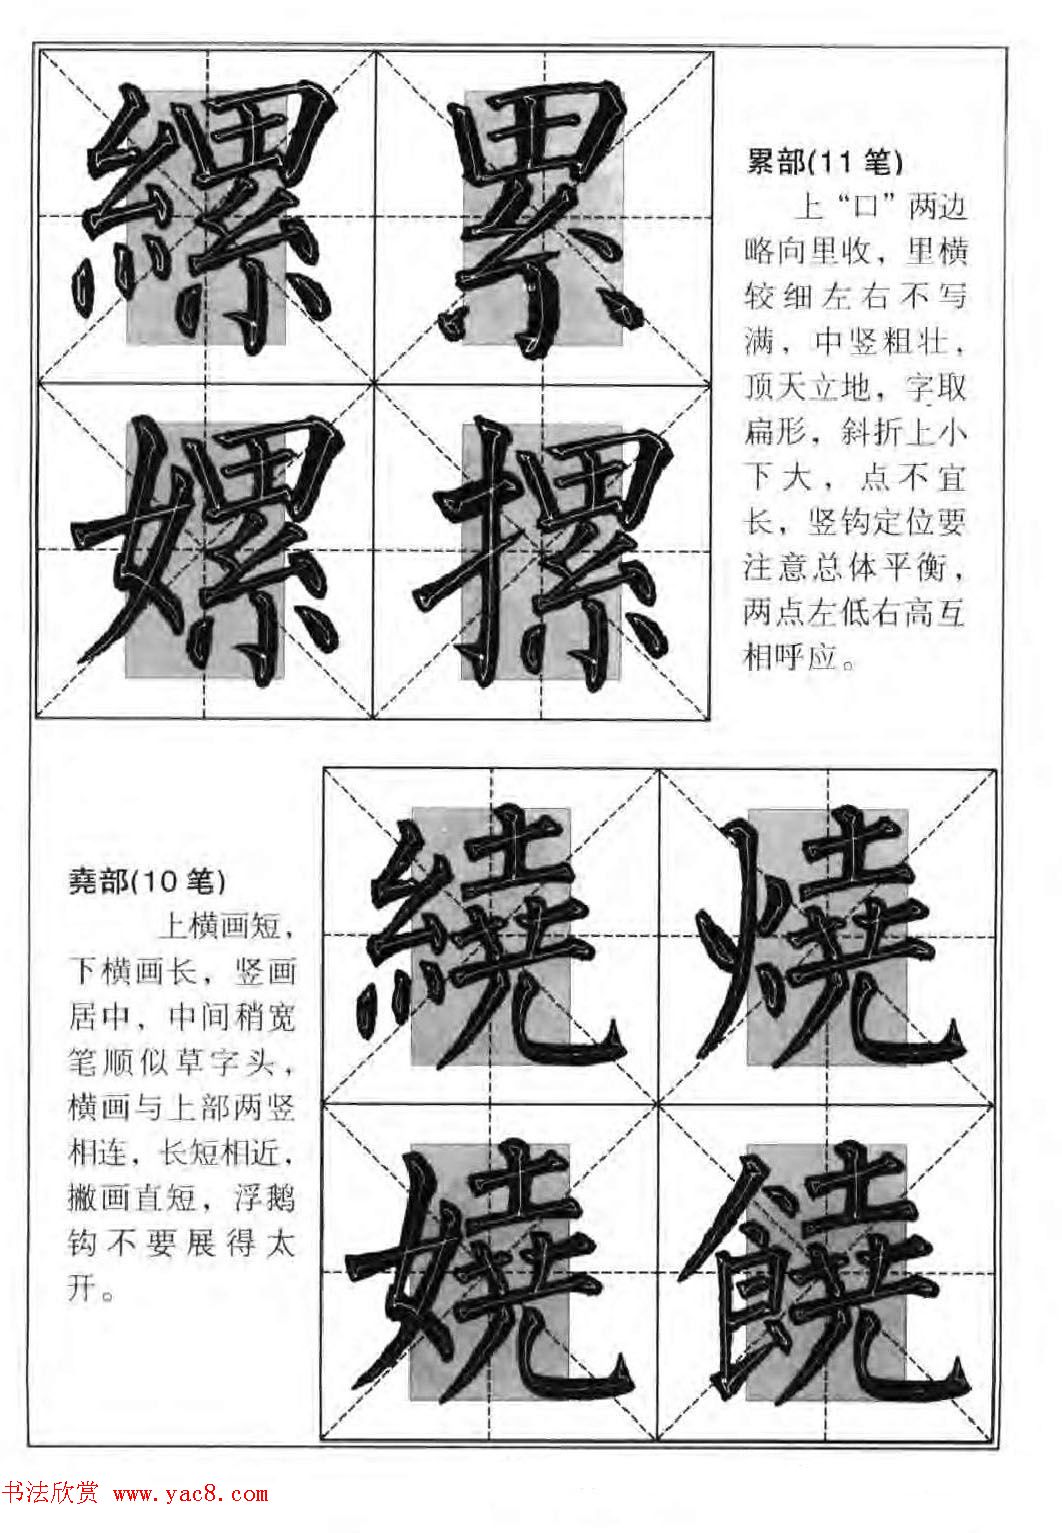 縲 累
嫘 摞
累部(11 笔)
上“口”两边
略向里收，里横
较细左右不写
满，中竖粗壮，
顶天立地，字取
扁形，斜折上小
下大，点不宜
长，竖钩定位要
注意总体平衡，
两点左低右高互
相呼应。
堯部(10 笔)
上横画短，
下横画长，竖画
居中，中间稍宽
笔顺似草字头，
横画与上部两竖
相连，长短相近，
撇画直短，浮鹅
钩不要展得太
开。
繞 燒
嬈 饒
书法欣赏 www.yac8.com